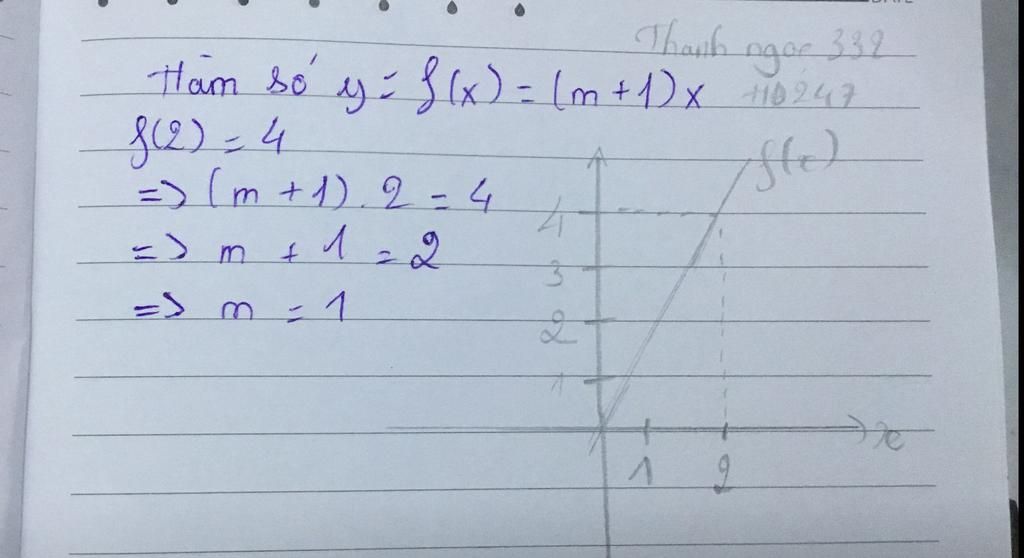 Thanh ngọc 332
Hàm số y = f(x) = (m+1)x
f(2) = 4
=> (m + 1) . 2 = 4
=> m + 1 = 2
=> m = 1
f(x)
4
3
2
1
x
1 2